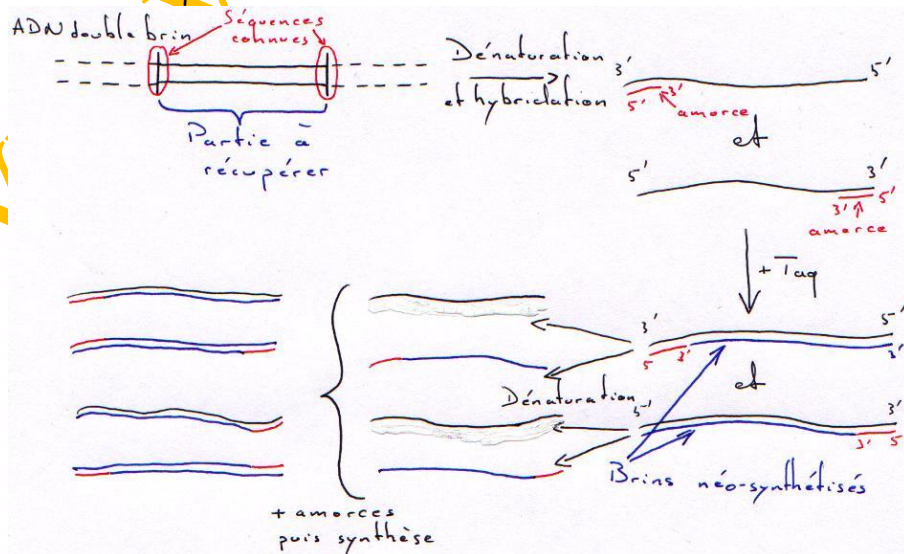 ADN double brin
Séquences
connues
Partie à
récupérer
Dénaturation
et hybridation
3'
5'
5'
3'
amorce
et
5'
3'
3'
5'
amorce
+ Taq
3'
5'
5
3'
3'
et
5'
3'
3'
5
Brins néo-synthétisés
Dénaturation
+ amorces
puis synthèse